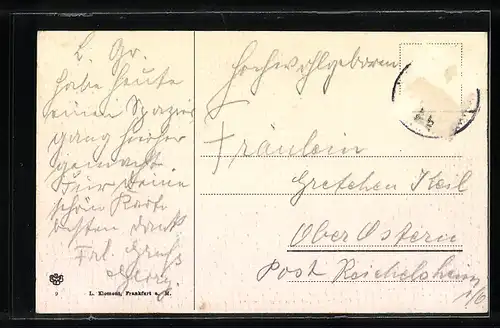 L. Gr.
habe heute
einen Spazier
gang hierher
gemacht
Für Deine
schön Karte
besten Dank
Frl. Gruß
Georg.
Hochwohlgeboren
Fräulein
Gretchen Keil
Ober Ostern
Post Reichelsheim
9 L. Klement, Frankfurt a. M.